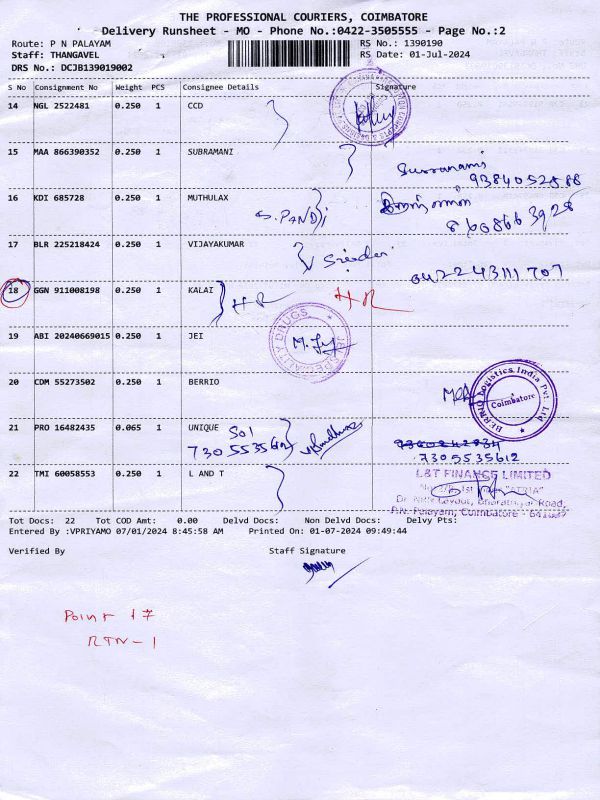 THE PROFESSIONAL COURIERS, COIMBATORE
Delivery Runsheet - MO - Phone No.:0422-3505555 - Page No.:2
Route: P N PALAYAM RS No.: 1390190
Staff: THANGAVEL RS Date: 01-Jul-2024
DRS No.: DCJB139019002
S No Consignment No Weight PCS Consignee Details Signature
14 NGL 2522481 0.250 1 CCD
15 MAA 866390352 0.250 1 SUBRAMANI
9384052588
16 KDI 685728 0.250 1 MUTHULAX
S. PANDJ
8608663928
17 BLR 225218424 0.250 1 VIJAYAKUMAR
04224311707
18 GGN 911008198 0.250 1 KALAI
HR HR
19 ABI 20240669015 0.250 1 JEI
20 CDM 55273502 0.250 1 BERRIO
BERRIO Logistics India Pvt. Ltd
Coimbatore
21 PRO 16482435 0.065 1 UNIQUE
7305535612
7305535612
22 TMI 60058553 0.250 1 L AND T
L&T FINANCE LIMITED
"ATRIA"
P.N. Palayam, Coimbatore -
Tot Docs: 22 Tot COD Amt: 0.00 Delvd Docs: Non Delvd Docs: Delvy Pts:
Entered By :VPRIYAMO 07/01/2024 8:45:58 AM Printed On: 01-07-2024 09:49:44
Verified By Staff Signature
Point 17
RTN-1